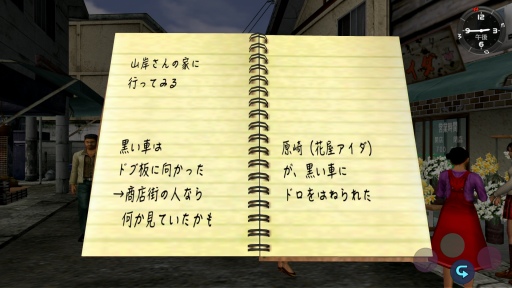 山岸さんの家に
行ってみる
黒い車は
ドブ板に向かった
→商店街の人なら
何か見ていたかも
原崎(花屋アイダ)
が、黒い車に
ドロをはねられた
12
3
6
9
午後